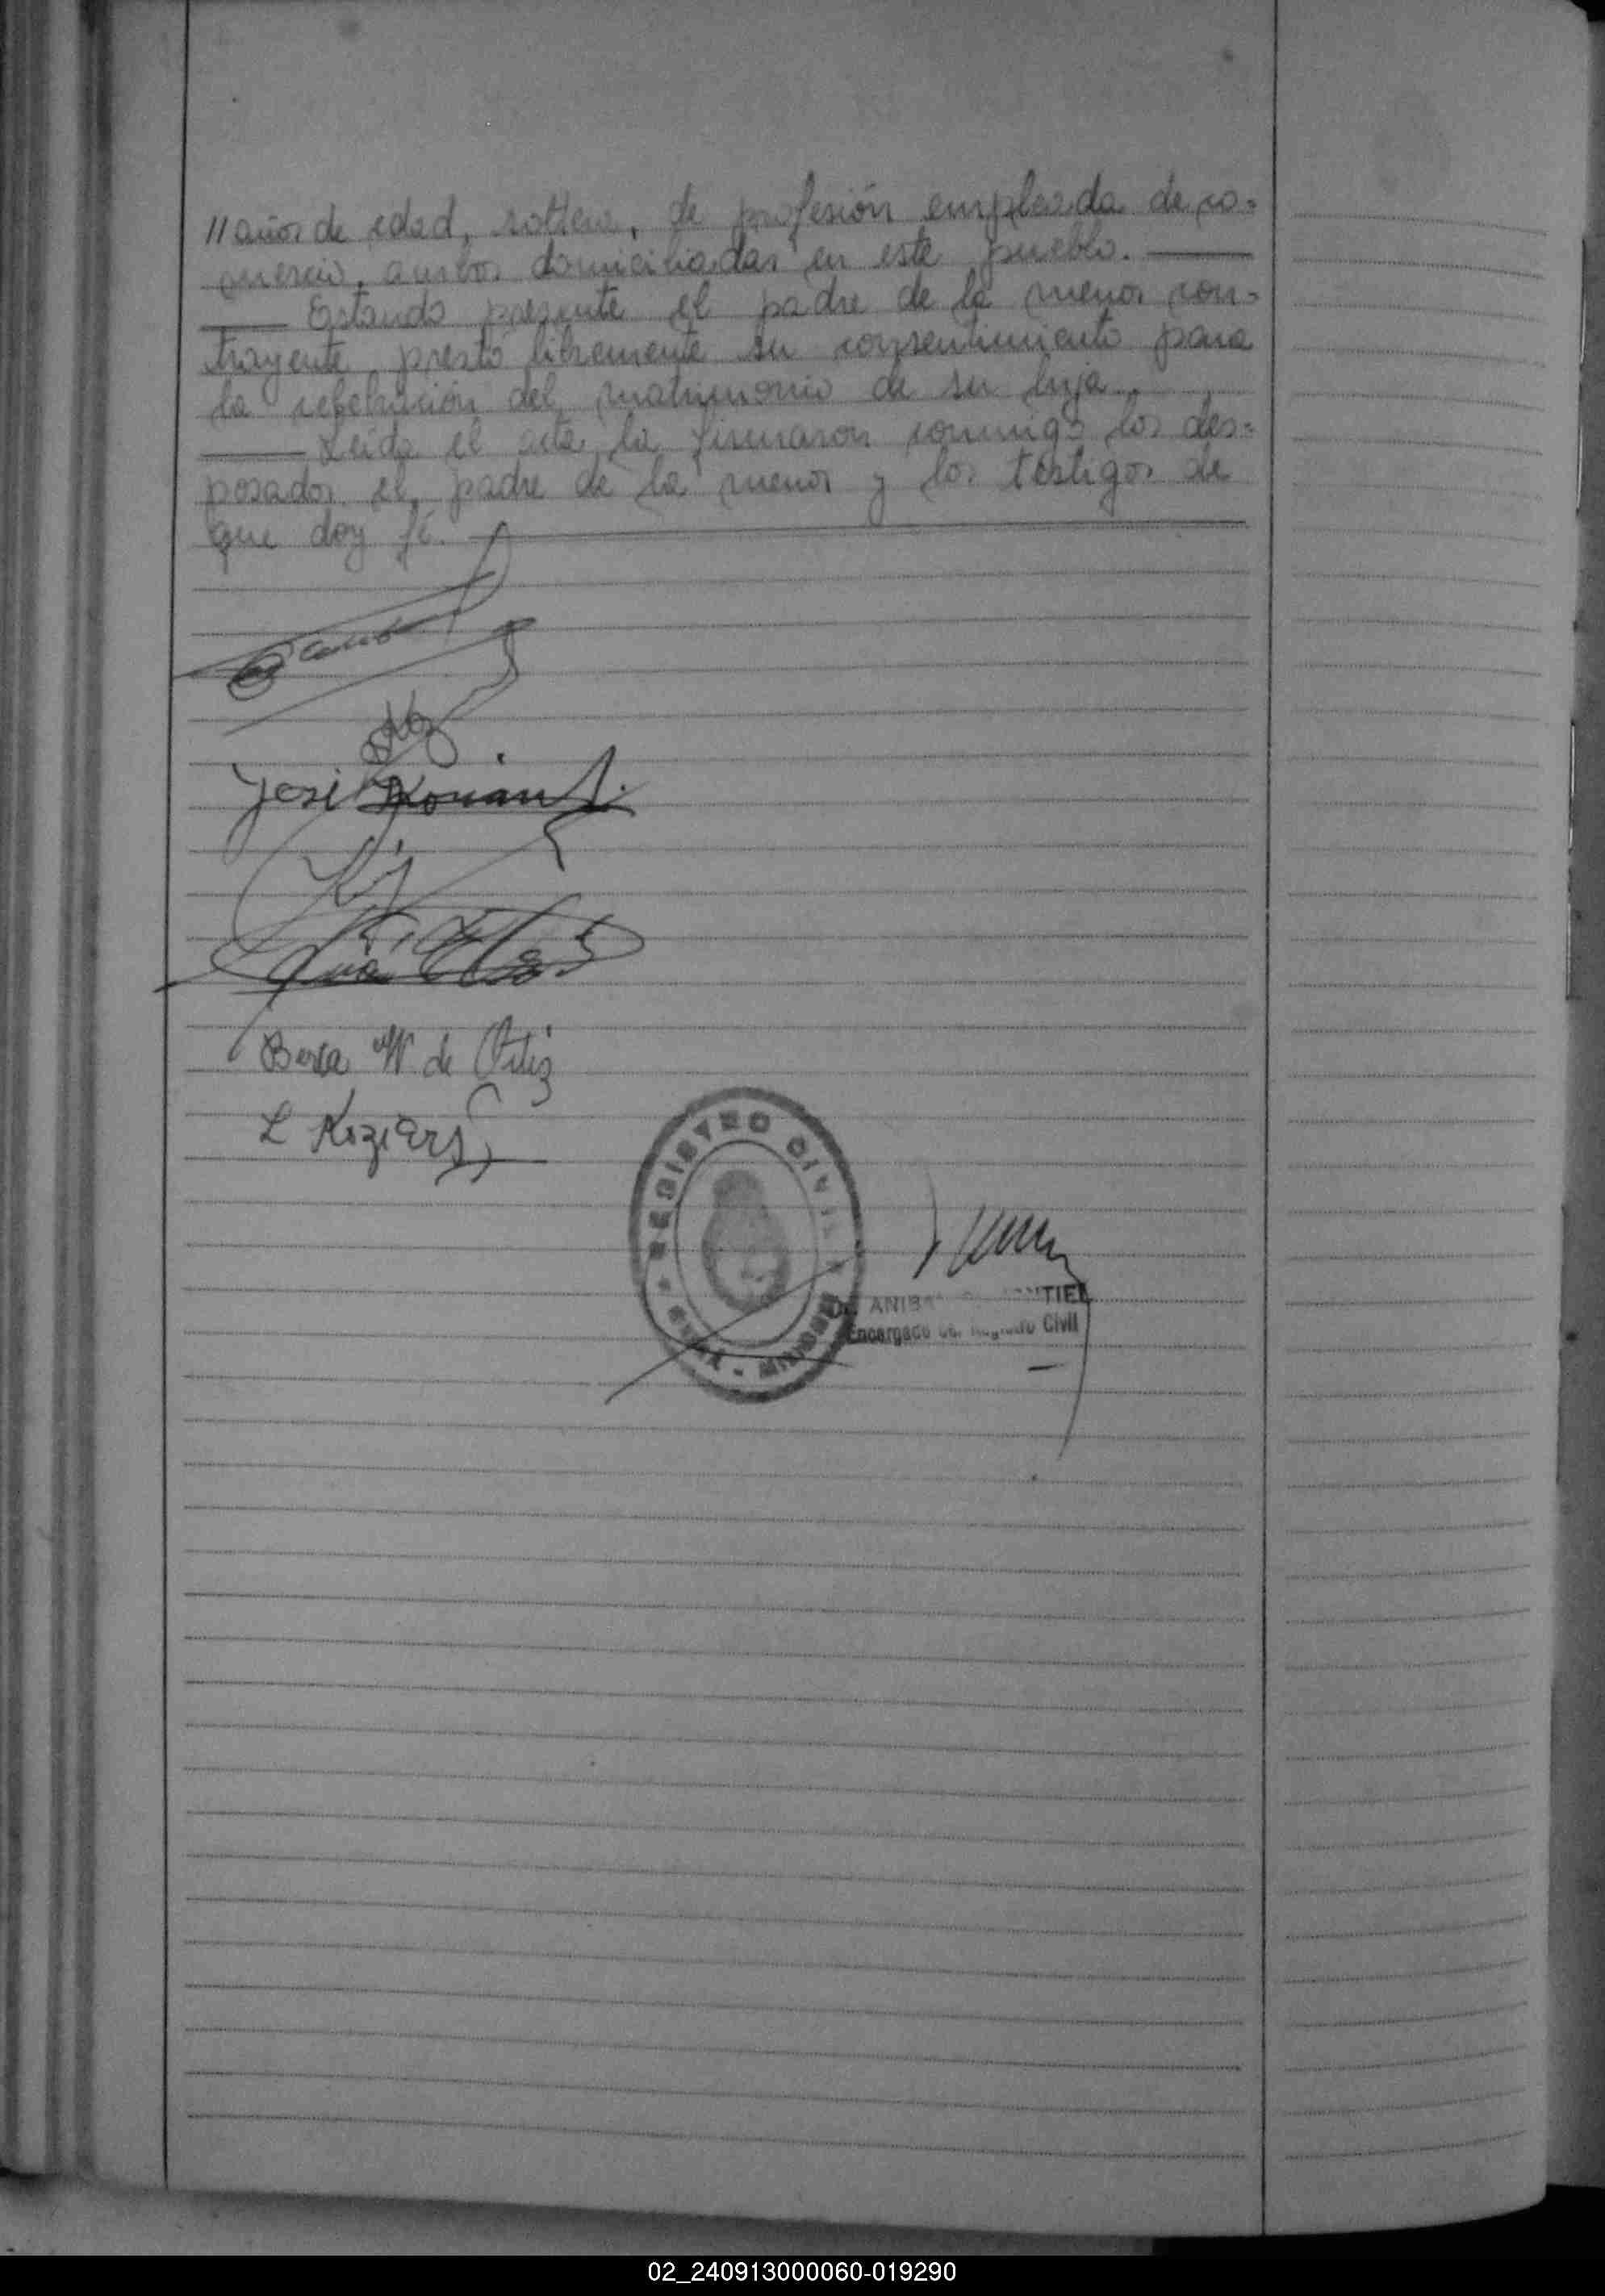 // años de edad, soltera, de profesión empleada de co=
mercio, ambos domiciliados en este pueblo.
Estando presente el padre de la menor con=
trayente, prestó libremente su consentimiento para
la celebración del matrimonio de su hija.
Leída el acta, la firmaron conmigo los des=
posados, el padre de la menor y los testigos de
que doy fé.
José
Berta W. de Ortiz
L
REGISTRO CIVIL
Encargado del Registro Civil
02_240913000060-019290